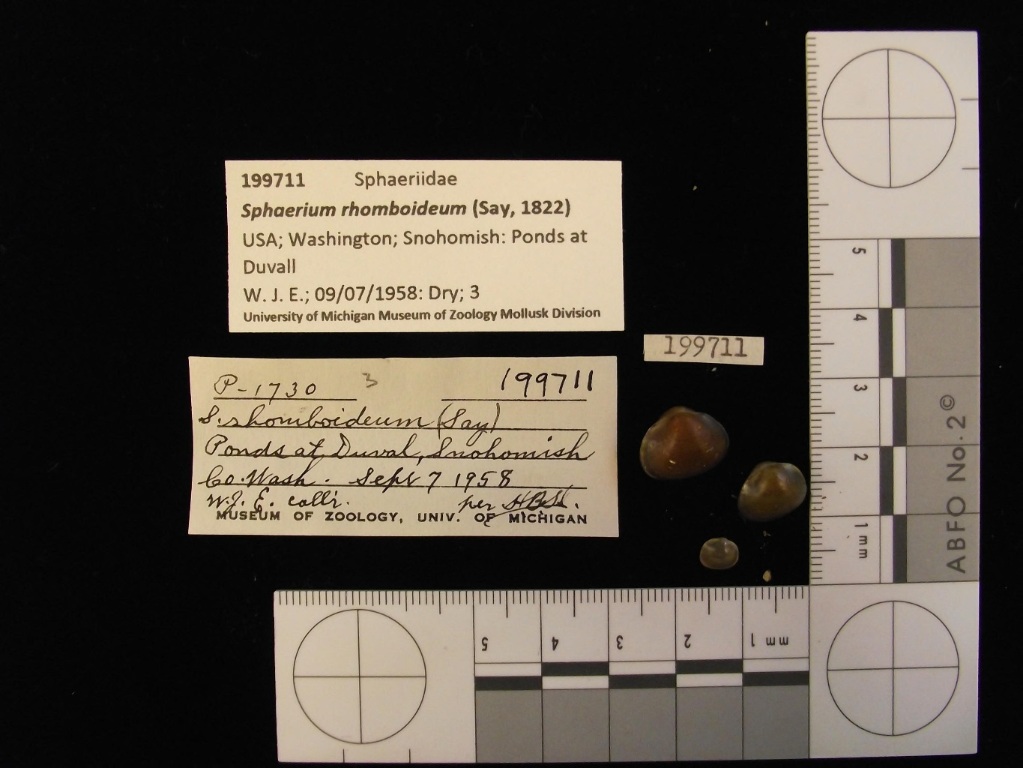 199711 Sphaeriidae
Sphaerium rhomboideum (Say, 1822)
USA; Washington; Snohomish: Ponds at
Duvall
W. J. E.; 09/07/1958: Dry; 3
University of Michigan Museum of Zoology Mollusk Division
199711
P-1730 3 199711
S. rhomboideum (Say)
Ponds at Duval, Snohomish
Co. Wash. Sept 7 1958
W. J. E. coll'r. per
MUSEUM OF ZOOLOGY, UNIV. OF MICHIGAN
5
4
3
2
1 mm
ABFO No. 2 ©
5 4 3 2 1 mm